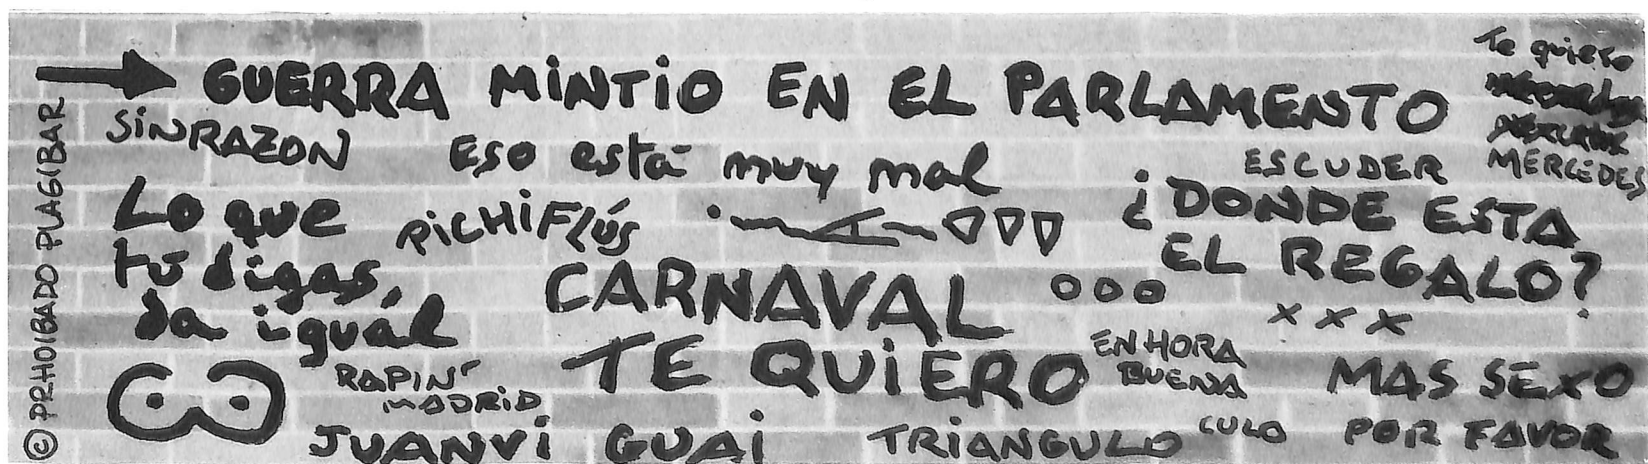 GUERRA MINTIO EN EL PARLAMENTO
Te quiero
MERCEDES
SINRAZON
Eso está muy mal
ESCUDER
Lo que
tú digas,
da igual
PICHIFLÚS
¿DONDE ESTA
EL REGALO?
x x x
CARNAVAL
TE QUIERO
EN HORA
BUENA
MAS SEXO
POR FAVOR
RAPIN
MADRID
JUANVI GUAI
TRIANGULO
CULO
© PRHOIBADO PLAGIBAR